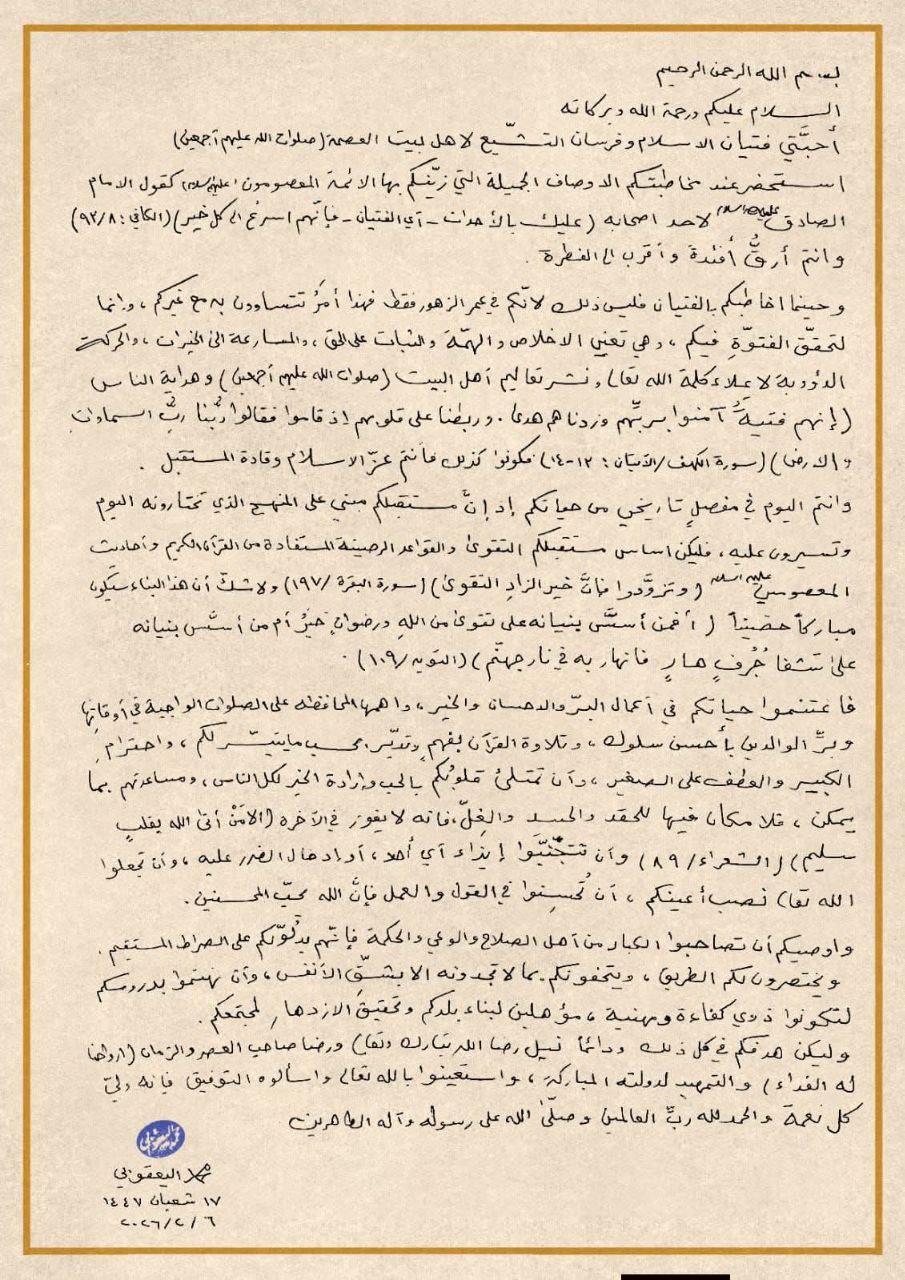 بسم الله الرحمن الرحيم
السلام عليكم ورحمة الله وبركاته
أحبَّتي فتيان الاسلام وفرسان التشيّع لاهل بيت العصمة (صلوات الله عليهم أجمعين)
استحضر عند مخاطبتكم الاوصاف الجميلة التي زيّنكم بها الائمة المعصومون (عليهم السلام) كقول الامام
الصادق (عليه السلام) لاحد اصحابه (عليك بالأحداث - أي الفتيان - فإنّهم اسرعُ الى كل خير) (الكافي: ٩٣/٨)
وانتم أرقُّ أفئدة وأقرب الى الفطرة.
وحينما اخاطبكم بالفتيان فليس ذلك لانّكم في عمر الزهور فقط فهذا أمرٌ تتساوون به مع غيركم، وإنما
لتحقّق الفتوّةِ فيكم، وهي تعني الاخلاص والهمّة والثبات على الحق، والمسارعة الى الخيرات، والحركة
الدؤوبة لإعلاء كلمة الله تعالى ونشر تعاليم أهل البيت (صلوات الله عليهم أجمعين) وهداية الناس
(إنهم فتيةٌ آمنوا بربِّهم وزدناهم هدىً. وربطنا على قلوبهم إذ قاموا فقالوا ربُّنا ربُّ السماوات
والارض) (سورة الكهف/الآيتان: ١٣-١٤) فكونوا كذلك فأنتم عزّ الاسلام وقادة المستقبل.
وانتم اليوم في مفصلٍ تاريخي من حياتكم إذ إنَّ مستقبلكم مبني على المنهج الذي تختارونه اليوم
وتسيرون عليه، فليكن اساس مستقبلكم التقوى والقواعد الرصينة المستفادة من القرآن الكريم وأحاديث
المعصومين (عليهم السلام) (وتزوَّدوا فإنَّ خير الزادِ التقوى) (سورة البقرة/١٩٧) ولا شكّ أن هذا البناء سيكون
مباركاً حصيناً (أفمن أسَّسَ بنيانه على تقوى من اللهِ ورضوانٍ خيرٌ أم من أسَّس بنيانه
على شفا جُرُفٍ هارٍ فانهار به في نار جهنّم) (التوبة/١٠٩).
فاغتنموا حياتكم في أعمال البرّ والاحسان والخير، واهمها المحافظة على الصلوات الواجبة في أوقاتها
وبرِّ الوالدين بأحسن سلوك، وتلاوة القرآن بفهمٍ وتدبّر بحسب ما يتيسّر لكم، واحترامِ
الكبير والعطف على الصغير، وأن تمتلئ قلوبُكم بالحب وإرادة الخير لكل الناس، ومساعدتهم بما
يمكن، فلا مكان فيها للحقد والحسد والغِلّ، فانه لا يفوز في الآخرة (إلا مَنْ أتى الله بقلبٍ
سليم) (الشعراء/٨٩) وأن تتجنّبوا إيذاء أي أحد، أو إدخال الضرر عليه، وأن تجعلوا
الله تعالى نصب أعينكم، أن تُحسِنوا في القول والعمل فإنَّ الله يحبّ المحسنين.
واوصيكم أن تصاحبوا الكبار من أهل الصلاح والوعي والحكمة فإنّهم يدلّونكم على الصراط المستقيم.
ويختصرون لكم الطريق، ويتحفونكم بما لا تجدونه الا بشقّ الأنفس، وأن تهتموا بدروسكم
لتكونوا ذوي كفاءة ومهنية، مؤهلين لبناء بلدكم وتحقيق الازدهارِ لمجتمعكم.
وليكن هدفكم في كل ذلك ودائماً نيل رضا الله تبارك وتعالى ورضا صاحب العصر والزمان (ارواحنا
له الفداء) والتمهيد لدولته المباركة، واستعينوا بالله تعالى واسألوه التوفيق فإنه وليّ
كل نعمة والحمد لله ربِّ العالمين وصلّى الله على رسوله وآله الطاهرين
محمد اليعقوبي
١٧ شعبان ١٤٤٧
٢٠٢٦/٢/٦